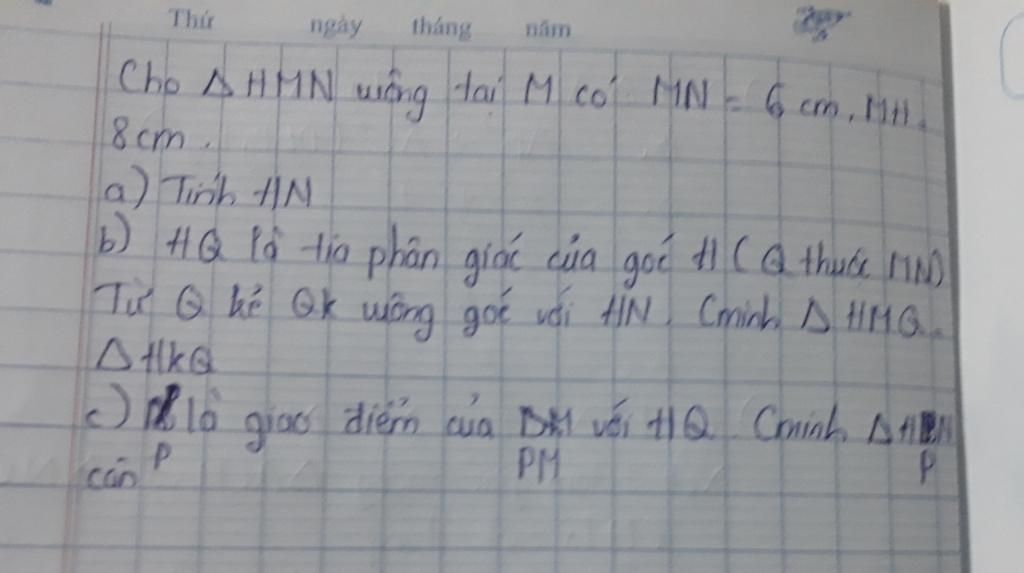 Thứ ngày tháng năm
Cho Δ HMN vuông tại M có MN = 6 cm, MH
8cm.
a) Tính HN
b) HQ là tia phân giác của góc H (Q thuộc MN)
Từ Q kẻ Qk vuông góc với HN. Cminh Δ HMQ =
Δ HkQ
c) là giao điểm của DM với HQ. Cminh Δ H N
P PM P
cân